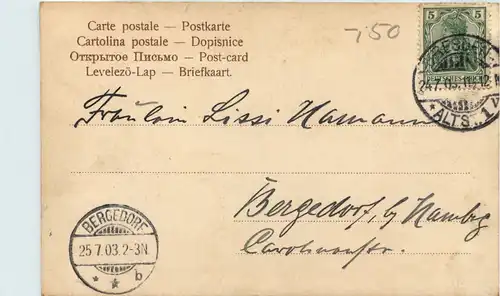 Carte postale — Postkarte
Cartolina postale — Dopisnice
Открытое Письмо — Post-card
Levelező-Lap — Briefkaart.
7.50
5 5
DEUTSCHES REICH
DRESDEN
24.7.03.11-12
* ALTST. 1
Fräulein Lissi Hamann
Bergedorf, b/ Hambg
Carolinenstr.
BERGEDORF
25.7.03.2-3N.
* * b